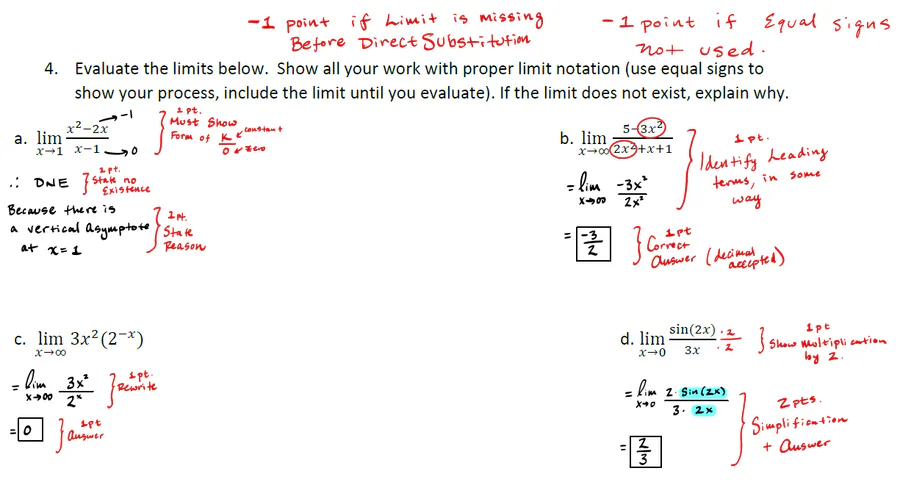 -1 point if Limit is missing
Before Direct Substitution
-1 point if Equal signs
not used.
4. Evaluate the limits below. Show all your work with proper limit notation (use equal signs to
show your process, include the limit until you evaluate). If the limit does not exist, explain why.
a. lim x→1 (x²−2x)/(x−1)
→ -1
→ 0
1 pt.
Must Show
Form of K/0
← constant
← zero
∴ DNE
1 pt.
State no
Existence
Because there is
a vertical Asymptote
at x = 1
1 pt.
State
Reason
b. lim x→∞ (5−3x²)/(2x²+x+1)
1 pt.
Identify Leading
terms, in some
way
= lim x→∞ -3x²/2x²
= -3/2
1 pt
Correct
Answer (decimal
accepted)
c. lim x→∞ 3x²(2⁻ˣ)
= lim x→∞ 3x²/2ˣ
1 pt.
Rewrite
= 0
1 pt
answer
d. lim x→0 sin(2x)/3x · 2/2
1 pt
Show multiplication
by 2.
= lim x→0 2·Sin(2x)/3·2x
= 2/3
2 pts.
Simplification
+ Answer